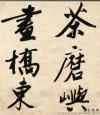 茶磨嶼
畫橋東